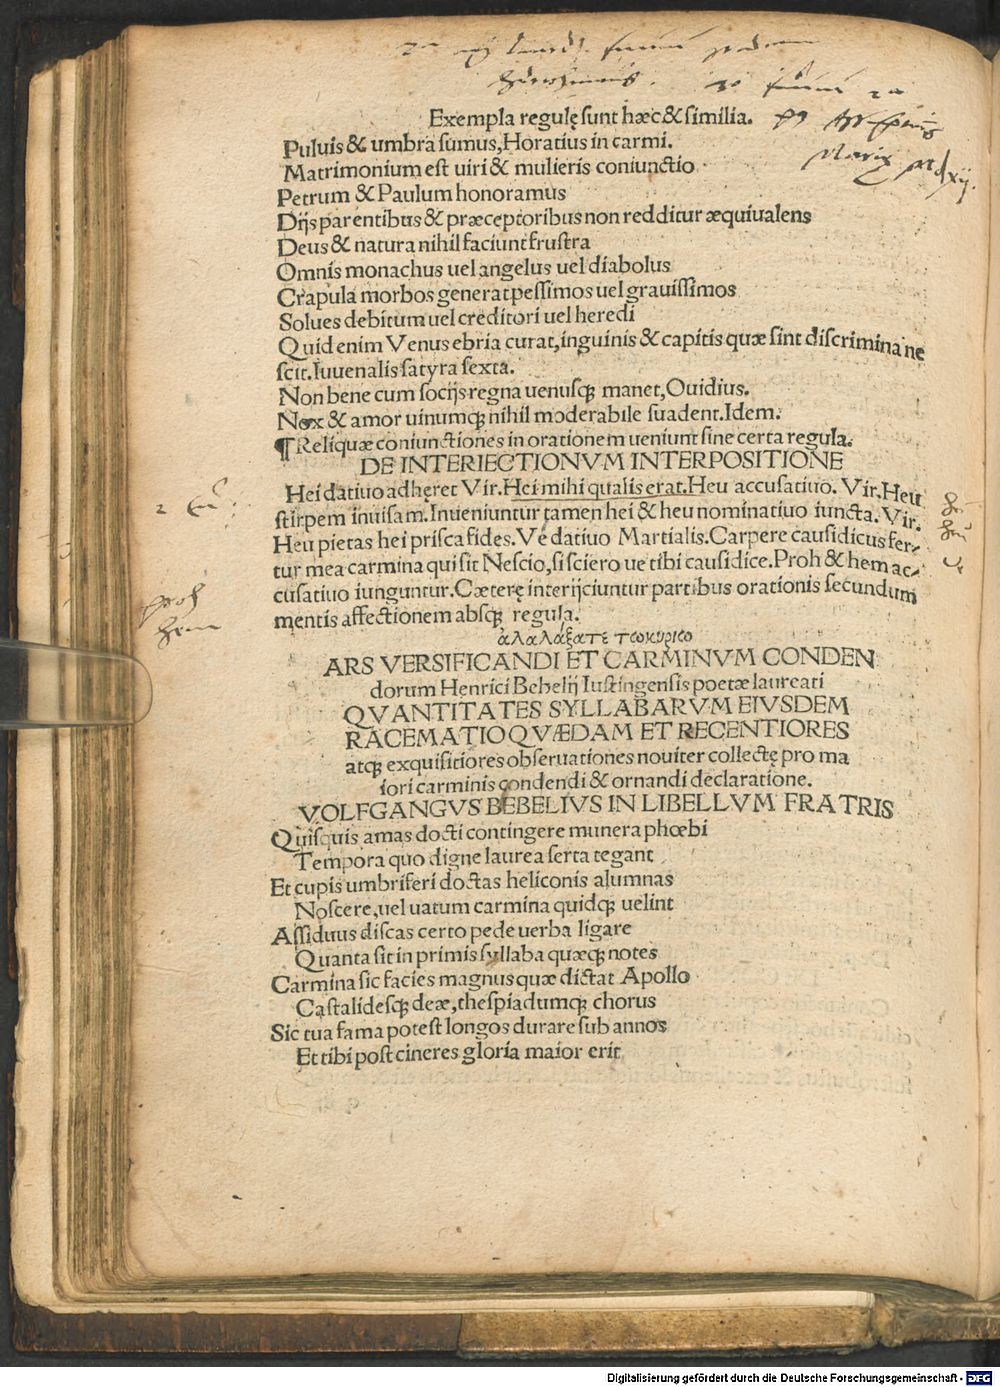 Exempla regulę sunt hæc & similia.
Puluis & umbra sumus, Horatius in carmi.
Matrimonium est uiri & mulieris coniunctio
Petrum & Paulum honoramus
Dijs parentibus & præceptoribus non redditur æquiualens
Deus & natura nihil faciunt frustra
Omnis monachus uel angelus uel diabolus
Crapula morbos generat pessimos uel grauissimos
Solues debitum uel creditori uel heredi
Quid enim Venus ebria curat, inguinis & capitis quæ sint discrimina ne
scit. Iuuenalis satyra sexta.
Non bene cum socijs regna uenusq; manet, Ouidius.
Nox & amor uinumq; nihil moderabile suadent. Idem.
¶ Reliquæ coniunctiones in orationem ueniunt sine certa regula.
DE INTERIECTIONVM INTERPOSITIONE
Hei datiuo adheret Vir. Hei mihi qualis erat. Heu accusatiuo. Vir. Heu
stirpem inuisam. Inueniuntur tamen hei & heu nominatiuo iuncta. Vir.
Heu pietas hei prisca fides. Ve datiuo Martialis. Carpere causidicus fer-
tur mea carmina qui sit Nescio, si sciero ue tibi causidice. Proh & hem ac-
cusatiuo iunguntur. Cæterę interijciuntur partibus orationis secundum
mentis affectionem absq; regula.
proh
hem
ἀλαλάξατε τωκυρίῳ
ARS VERSIFICANDI ET CARMINVM CONDEN
dorum Henrici Bebelij Iustingensis poetæ laureati
QVANTITATES SYLLABARVM EIVSDEM
RACEMATIO QVÆDAM ET RECENTIORES
atq; exquisitiores obseruationes nouiter collectę pro ma
iori carminis condendi & ornandi declaratione.
VOLFGANGVS BEBELIVS IN LIBELLVM FRATRIS
Quisquis amas docti contingere munera phœbi
Tempora quo digne laurea serta tegant
Et cupis umbriferi doctas heliconis alumnas
Noscere, uel uatum carmina quidq; uelint
Assiduus discas certo pede uerba ligare
Quanta sit in primis syllaba quæq; notes
Carmina sic facies magnus quæ dictat Apollo
Castalidesq; deæ, thespiadumq; chorus
Sic tua fama potest longos durare sub annos
Et tibi post cineres gloria maior erit
Digitalisierung gefördert durch die Deutsche Forschungsgemeinschaft - DFG